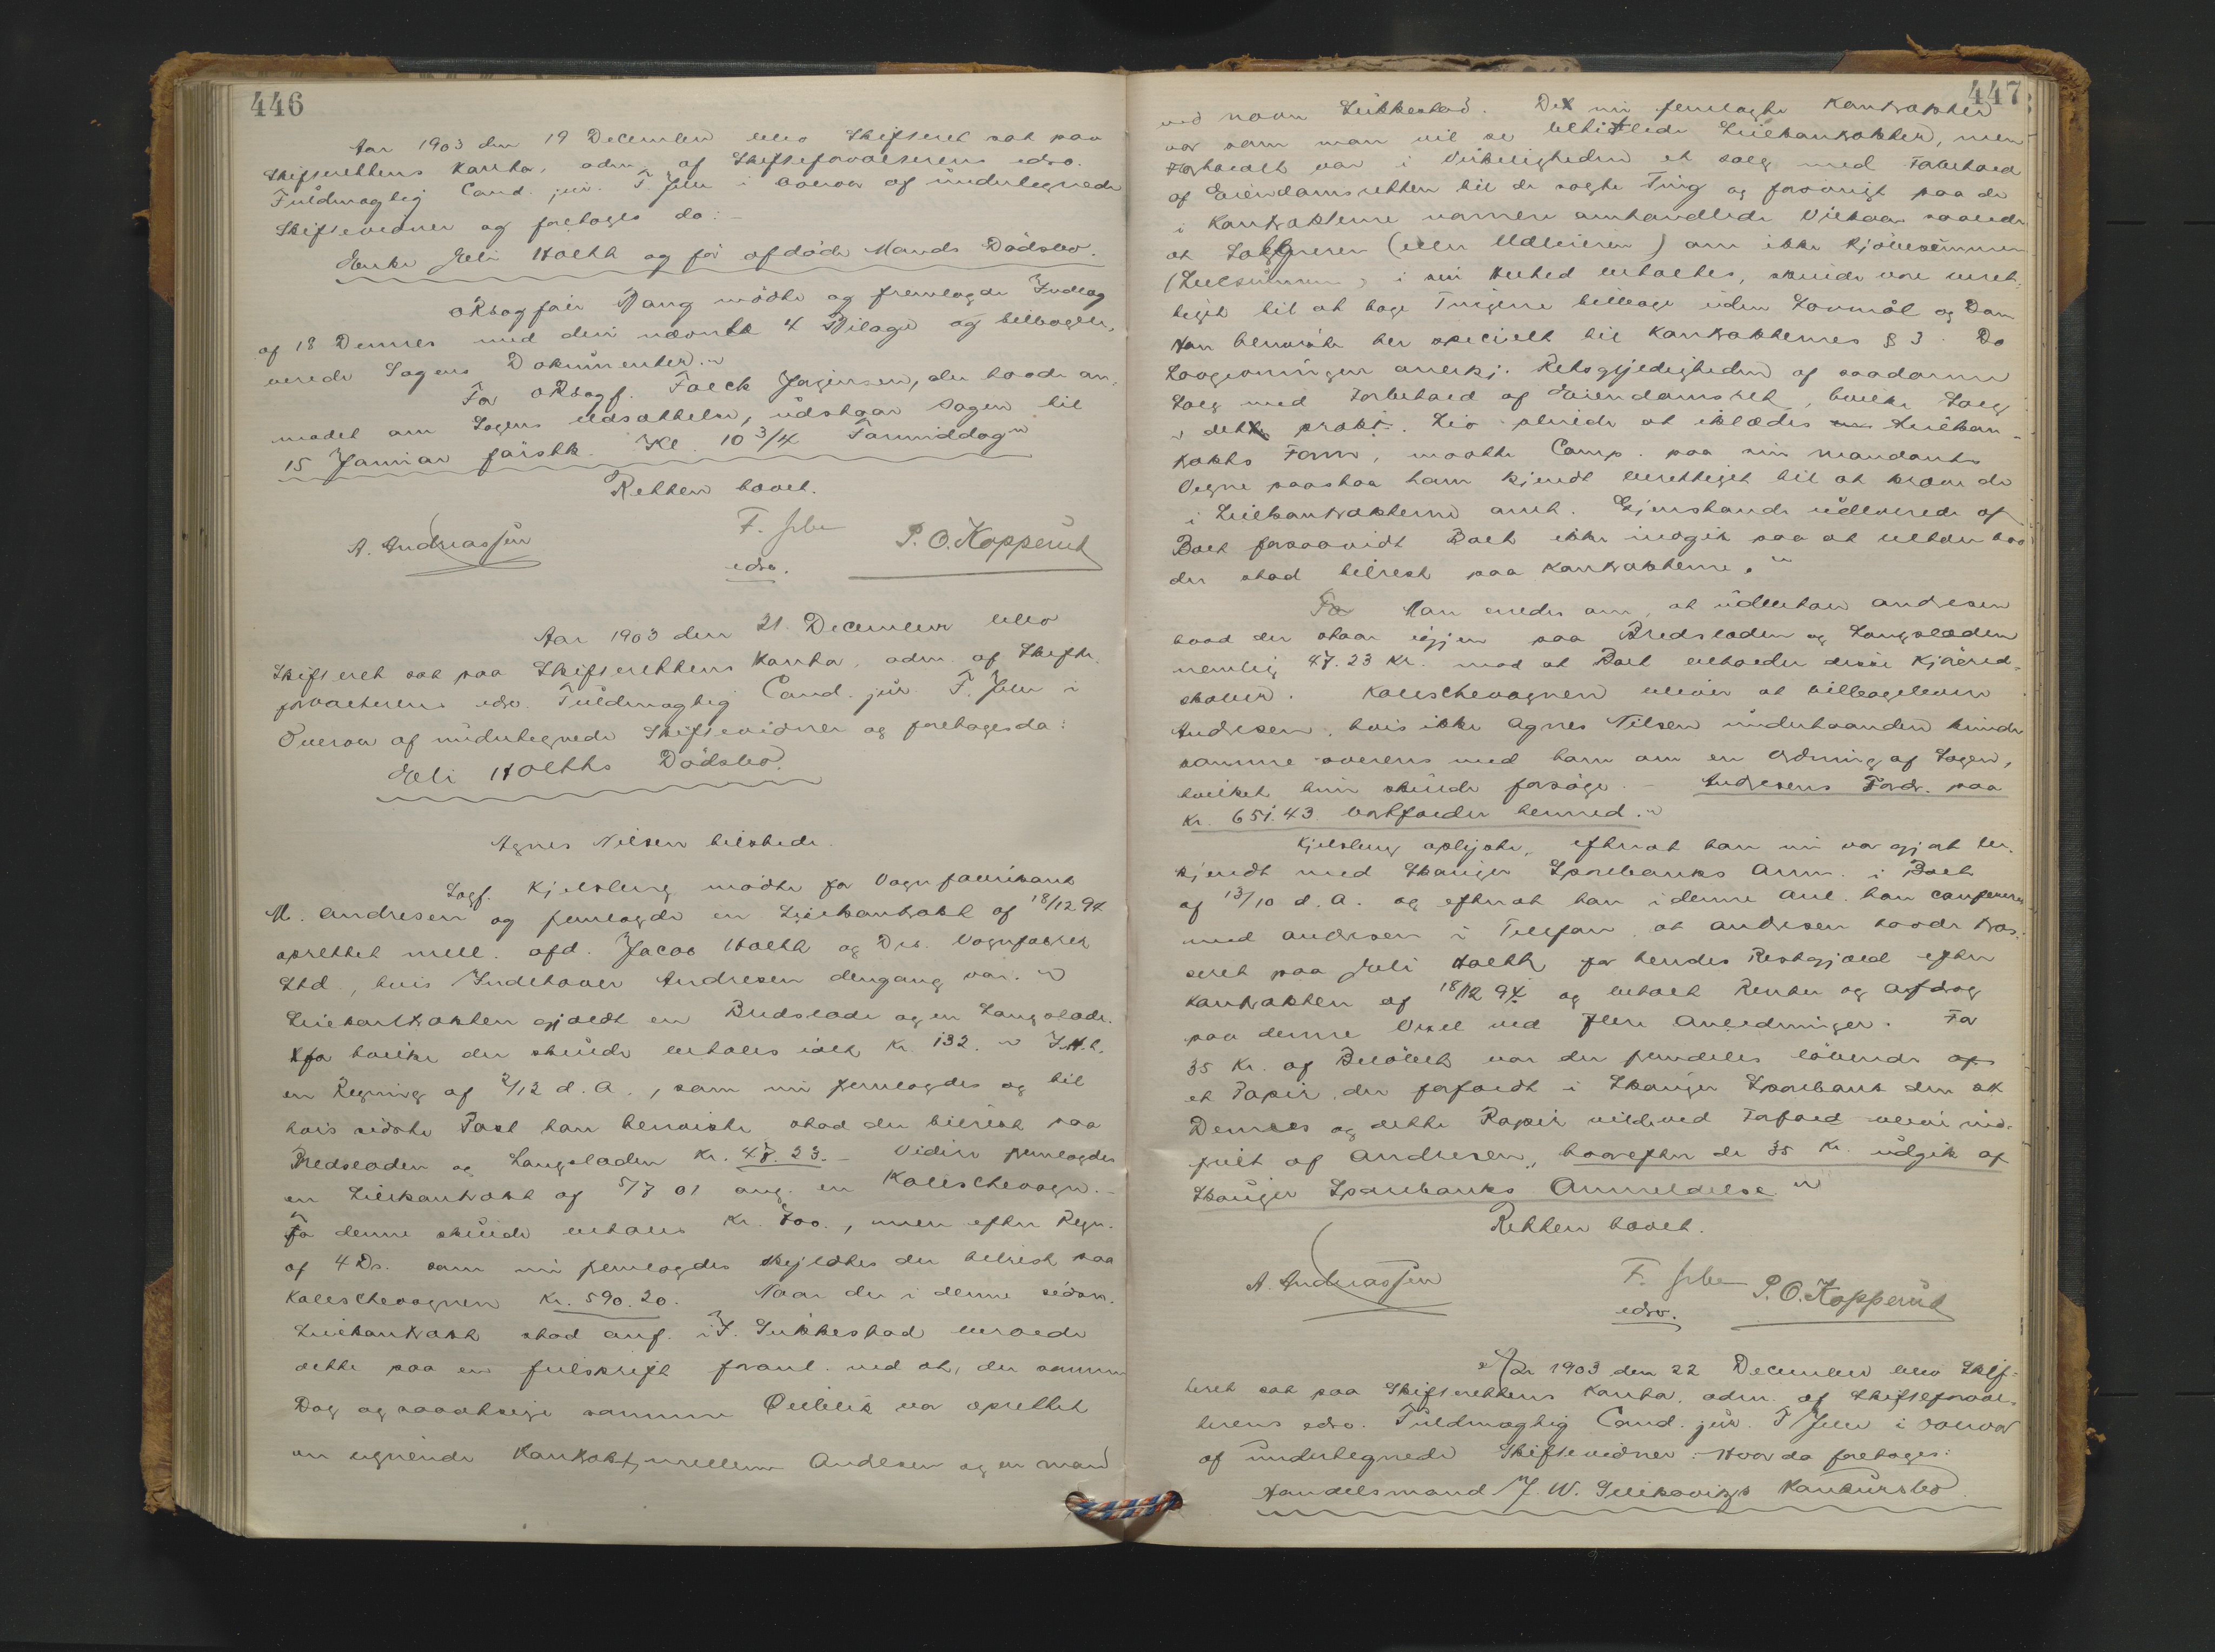 446
Aar 1903 den 19 December blev Skifteret sat paa
Skifterettens Kontor, adm. af Skifteforvalterens edsv.
Fuldmægtig Cand. jur. F. Jebe i Overvær af undertegnede
Skiftevidner og foretoges da:
Enke Jeli Holth og før afdöde Mands Dödsbo.
ORsagför Bang mödte og fremlagde Indlæg
af 18 Dennes med deri nævnte 4 Bilage og tilbagele-
verede Sagens Dokumenter."
For ORsagf. Falck Jørgensen, der havde an-
modet om Sagens Udsættelse, udstaar Sagen til
15 Januar førstk. Kl. 10 3/4 Formiddag"
Retten hævet.
A. Andreassen
F. Jebe
edsv.
P. O. Kopperud
Aar 1903 den 21 December blev
Skifteret sat paa Skifterettens Kontor, adm. af Skifte-
forvalterens edsv. Fuldmægtig Cand. jur. F. Jebe i
Overvær af undertegnede Skiftevidner og foretoges da:
Jeli Holths Dödsbo.
Agnes Nilsen tilstede.
Sagf. Kjelsberg mödte for Vognfabrikant
M. Andresen og fremlagde en Leiekontrakt af 18/12 94
oprettet mell. afd. Jacob Holth og Drb. Vognfabrik
Ltd., hvis Indehaver Andresen dengang var. "
Leiekontrakten gjældt en Bredslæde og en Langslæde.
for hvilke der skulde betales ialt Kr. 132. " I.H.t.
en Regning af 2/12 d. A., som nu fremlagdes og til
hvis sidste Post han henviste stod der tilrest paa
Bredslæden og Langslæden Kr. 47.23. – Videre fremlagdes
en Leiekontrakt af 5/7 01 ang. en Kaleschevogn. –
For denne skulde betales Kr. 700., men efter Regn.
af 4 Ds. som nu fremlagdes skyldtes der tilrest paa
Kaleschevognen Kr. 590.20. Naar der i denne sidstn.
Leiekontrakt stod anf. i F. Lukkestad beroede
dette paa en feilskrift foranl. ved at, der samme
Dag og saaatsige samme Öieblik var oprettet
en lignende Kontrakt, mellem Andresen og en mand
447
ved navn Lukkestad. De nu fremlagte Kontrakter
var som man vil se betitlede Leiekontrakter, men
Forholdt var i Virkeligheden et salg med Forbehold
af Eiendomsretten til de solgte Ting og forövrigt paa de
i Kontrakterne nærmere omhandlede Vilkaar saaledes
at Sælgeren (eller Udleieren) om ikke Kjöbesummen
(Leiesummen) i sin Helhed betaltes, skulde være beret-
tiget til at tage Tingene tilbage uden Lovmål og Dom
Han henviste her specielt til Kontrakternes § 3. Da
Lovgivningen anerkj. Retsgyldigheden af saadanne
Salg med Forbehold af Eiendomsret, hvilke Salg
i det prakt. Liv pleiede at iklædes Leiekon-
trakts Form, maatte Comp. paa sin Mandants
Vegne paastaa ham kjendt berettiget til at kræve de
i Leiekontrakterne omh. Gjenstande udleverede af
Boet forsaavidt Boet ikke indgik paa at betale hvad
der stod tilrest paa Kontrakterne."
Man enedes om, at udbetale Andresen
hvad der staar igjen paa Bredslæden og Langslæden
nemlig 47.23 Kr. mod at Boet beholder disse Kjöred-
skaber. Kaleschevognen bliver at tilbagelevere
Andresen, hvis ikke Agnes Nilsen underhaanden kunde
komme overens med ham om en Ordning af Sagen,
hvilket hun skulde forsöge. – Andresens Fordr. paa
Kr. 651.43 bortfalder hermed."
Kjelsberg oplyste, efterat han nu var gjort be-
kjendt med Skauger Sparebanks Anm. i Boet
af 13/10 d. A. og efterat han i denne Anl. har confereret
med Andresen i Telefon, at Andresen havde tras-
seret paa Jeli Holth for hendes Restgjæld efter
Kontrakten af 18/12 94 og betalt Renter og Afdrag
paa denne Vexel ved flere Anledninger. For
35 Kr. af Beløbet var der fremdeles löbende
et Papir, der forfaldt i Skauger Sparebank den
Dennes og dette Papir vilde ved Forfald blive ind-
friet af Andresen, hvorefter de 35 Kr. udgik af
Skauger Sparebanks Anmeldelse."
Retten hævet.
A. Andreassen
F. Jebe
edsv.
P. O. Kopperud
Aar 1903 den 22 December blev Skif-
teret sat paa Skifterettens Kontor, adm. af Skifteforval-
terens edsv. Fuldmægtig Cand. jur. F Jebe i Overvær
af undertegnede Skiftevidner. – Hvor da foretoges:
Handelsmand J. W. Konkursbo